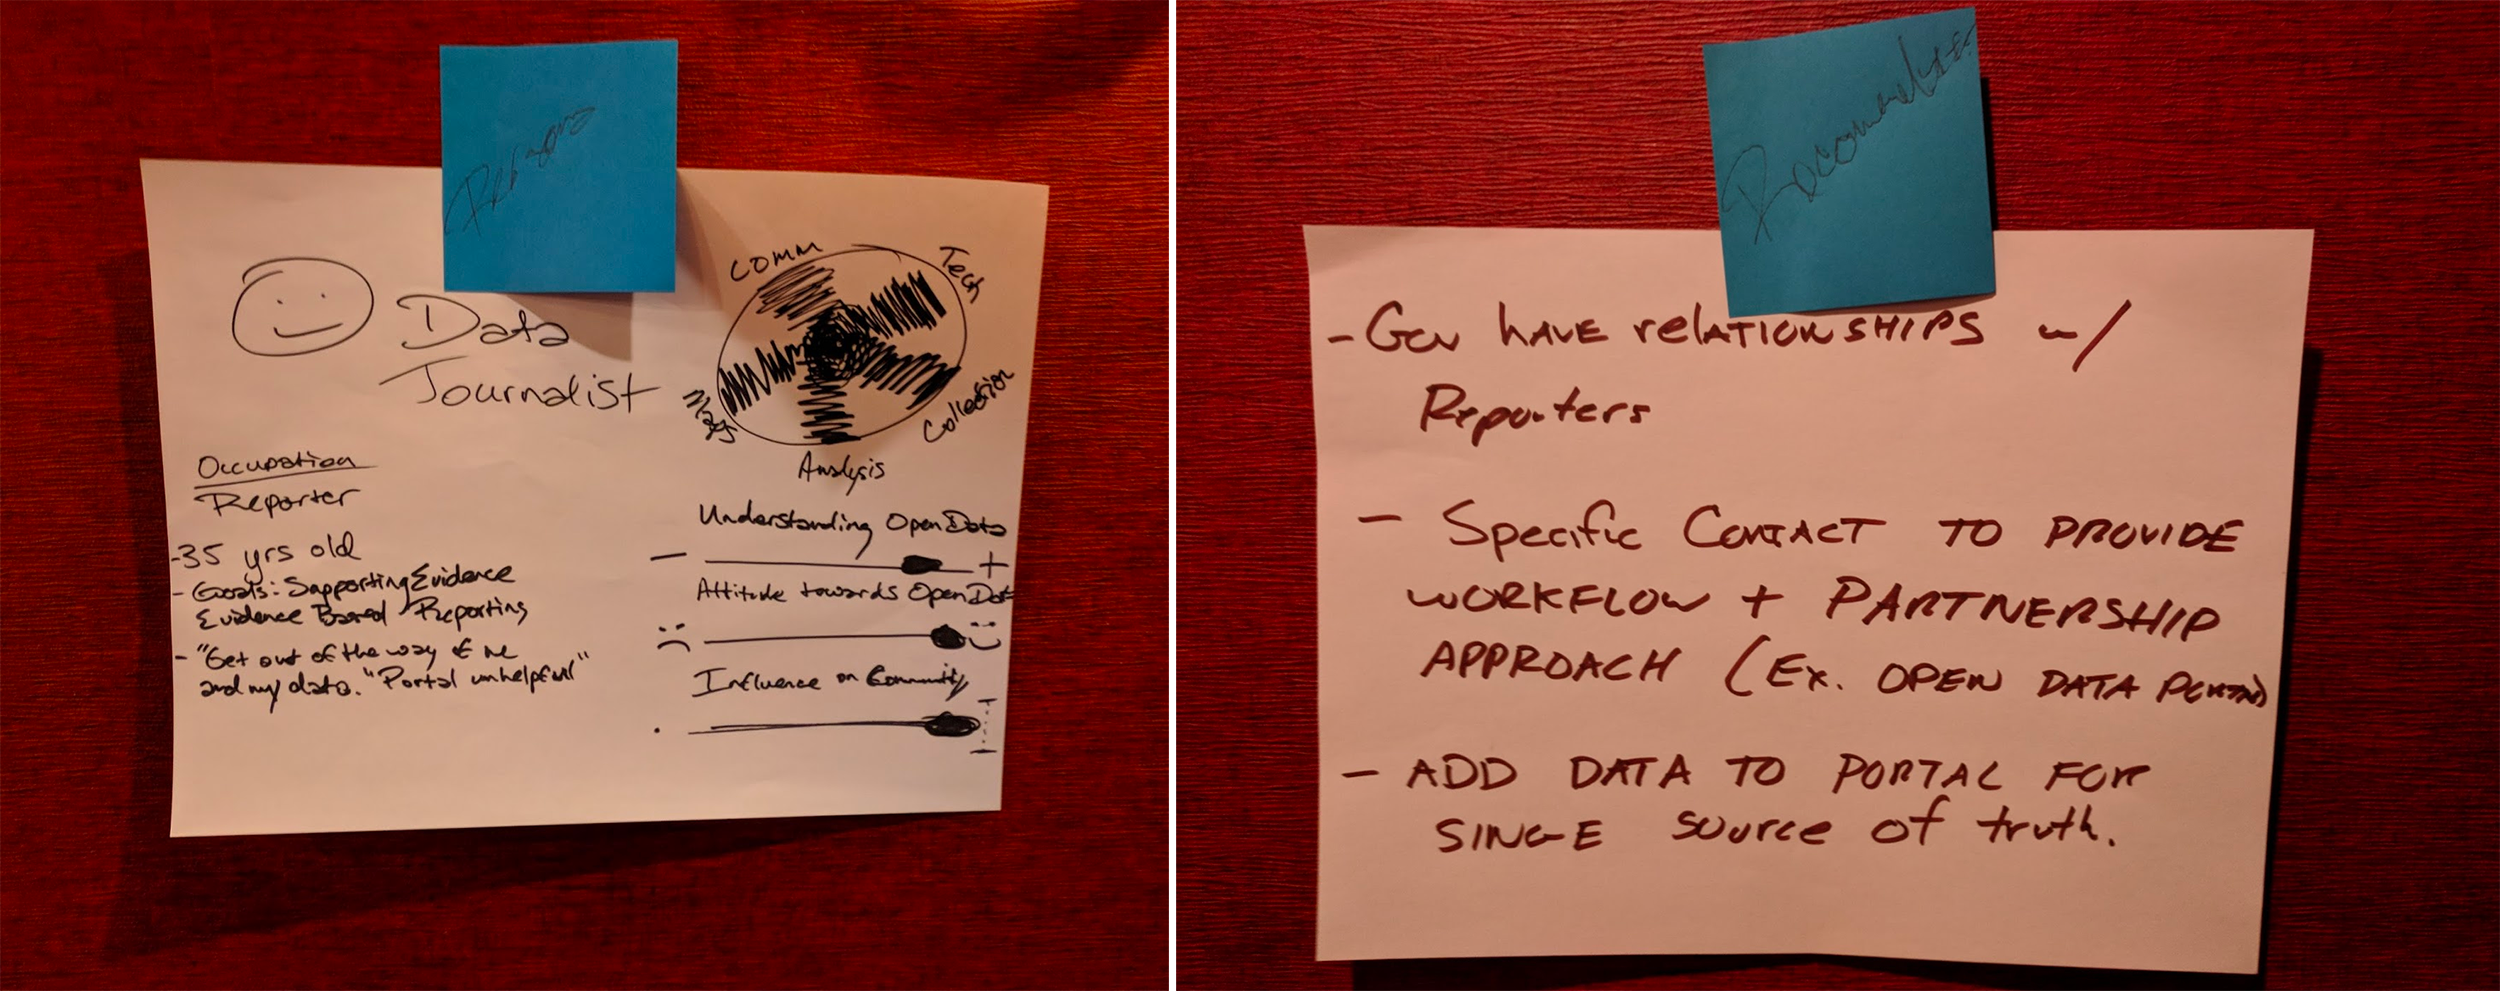 Persona
Data
Journalist
Occupation
Reporter
-35 yrs old
- Goals: Supporting Evidence
Evidence Based Reporting
- "Get out of the way of me
and my data." "Portal unhelpful"
Comm
Tech
Collection
Analysis
Understanding Open Data
- +
Attitude towards Open Data
Influence on Community
- Gov HAVE relATIONSHIPS w/
Reporters
- Specific CONTACT TO PROVIDE
WORKFLOW + PARTNERSHIP
APPROACH (Ex. OPEN DATA PORTAL)
- ADD DATA TO PORTAL FOR
SINGE source of truth.